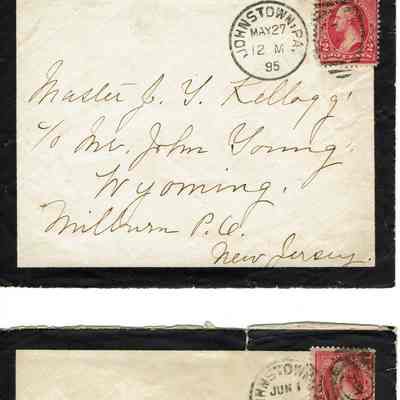 JOHNSTOWN, PA.
MAY 27
12 M
95
2 2
Master J. Y. Kellogg
c/o Mr. John Young.
Wyoming.
Milburn P.O.
New Jersey.
JOHNSTOWN, PA
JUN 1